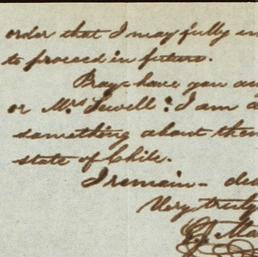 order that I may fully
to proceed in future.
Pray have you
or Mrs Sewell? I am
something about them
state of Chile.
I remain -
Very truly